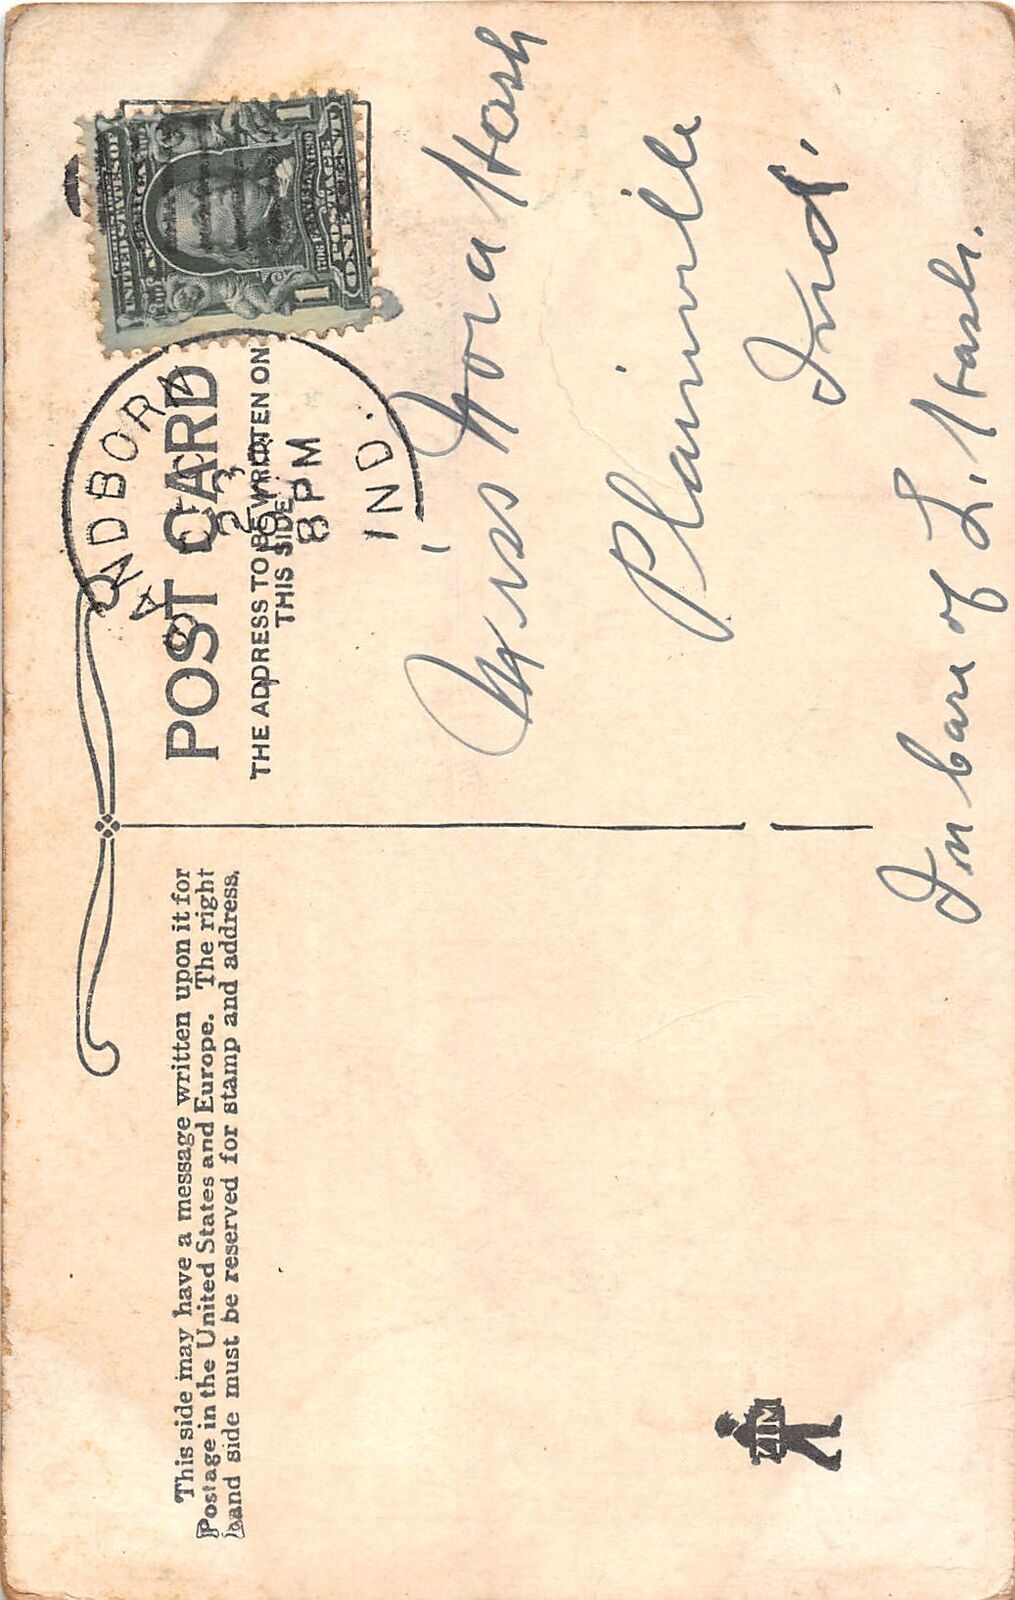 This side may have a message written upon it for
Postage in the United States and Europe. The right
hand side must be reserved for stamp and address.
POST CARD
THE ADDRESS TO BE WRITTEN ON
THIS SIDE
SANDBORN
23
8 PM
IND.
UNITED STATES OF
AMERICA
FRANKLIN
POSTAGE
ONE
1
1
Miss Nora Hash
Plainville
Ind.
In care of L. Hash.
ZIM